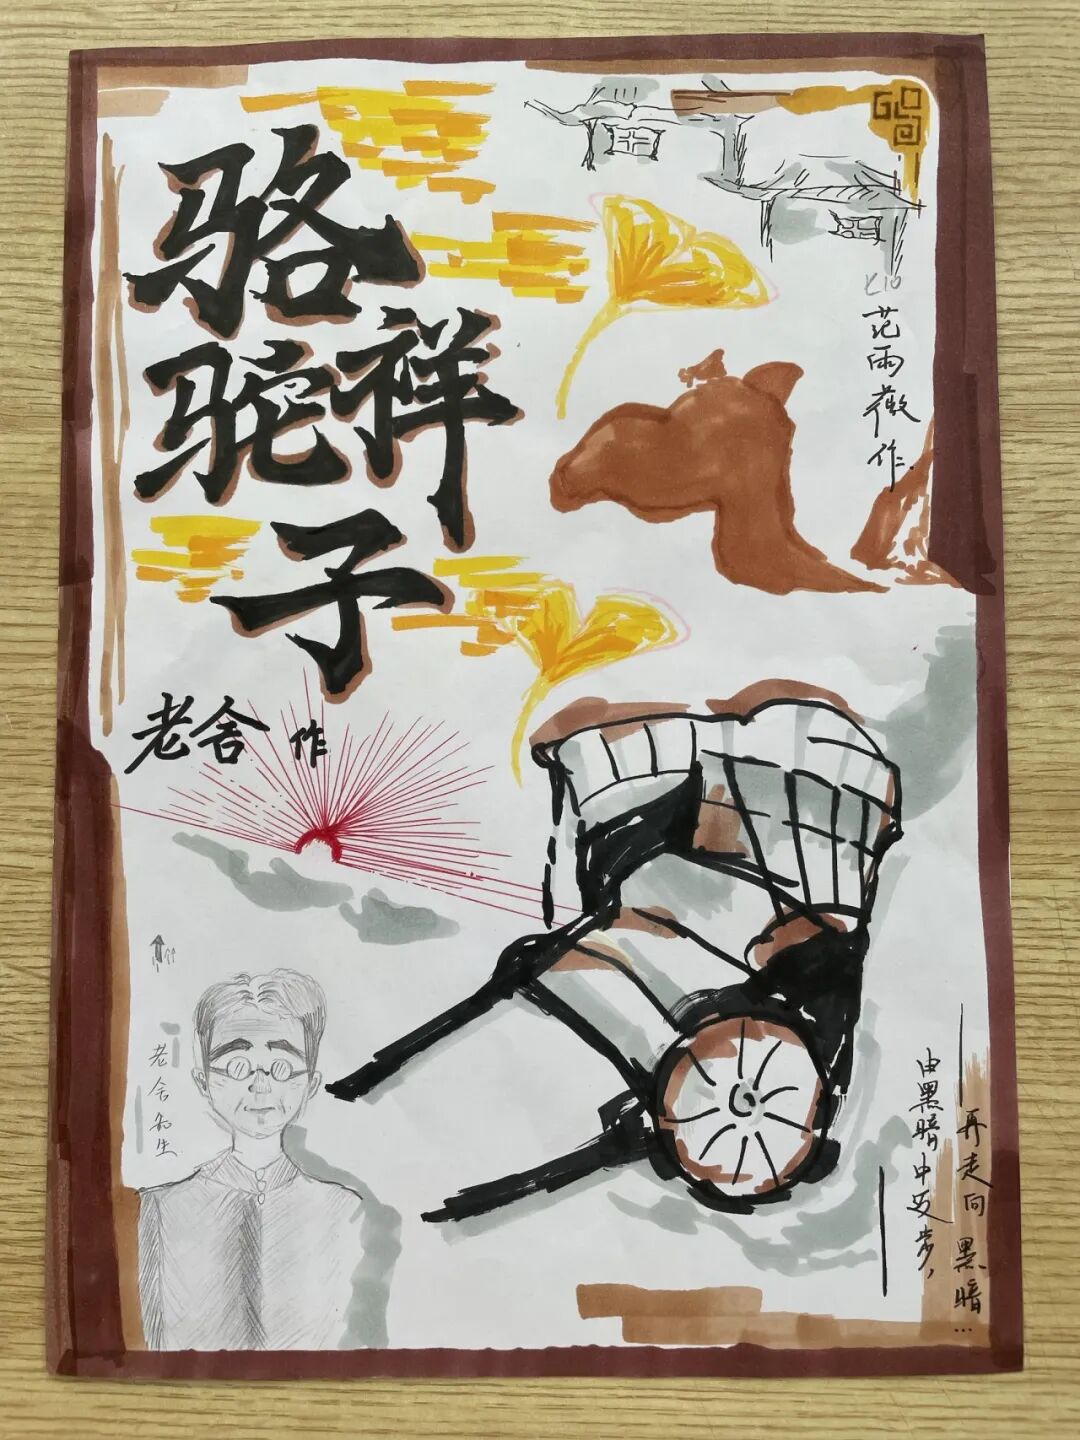 骆
驼祥
子
老舍 作
七10
范雨薇作.
老舍先生
由黑暗中迈步,
再走向黑暗...